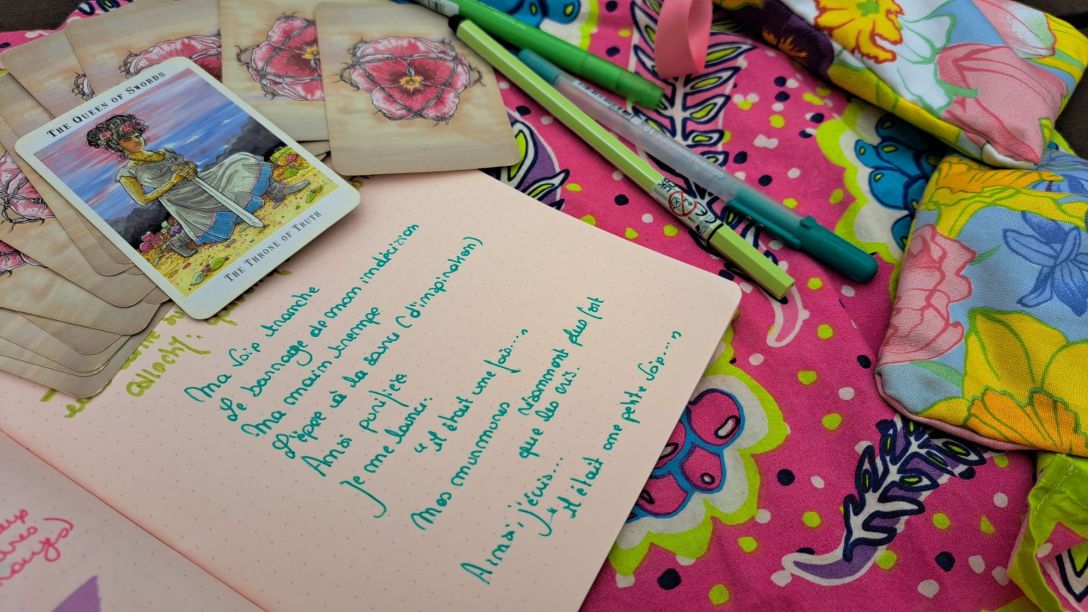 THE QUEEN OF SWORDS
THE THRONE OF TRUTH
Ma Voix tranche
Le barrage de mon indécision
Ma main trempe
L'épée sang (d'imagination)
Ainsi purifiée
Je me lance:
« il était une fois...,,
Mes murmures résonnent plus fort
que les cris.
Ainsi, j'écris...
« Il était une petite voix...,,